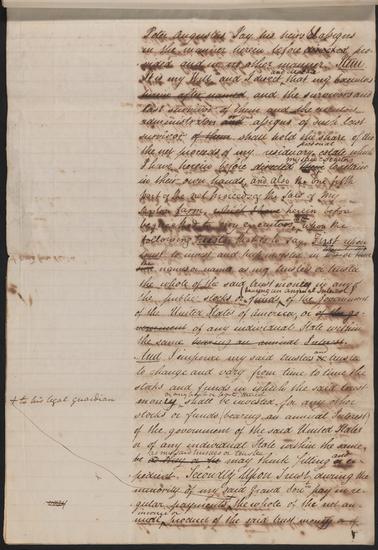 Peter Augustus Jay his heirs & assigns
in the manner herein before directed pro-
vided and in no other manner. Item
It is my Will and I direct that my executors
and the survivors and
last survivor of them and the executors
administrators assigns of such last
survivor of them shall hold the share of
the net proceeds of my residuary personal estate which
I have herein before directed them to retain
in their own hands, and also the one fifth
part of the net proceeds of the sale of my
farm, which I have herein before
my executors, upon the
following Trusts that is to say, First upon
trust to invest and keep invested in
names or name as my trustees or trustee
the whole of the said trust money in any of
the public stocks or funds, of the Government
of the United States of America, or of the go-
vernment of any individual State within
the same bearing an annual Interest.
And I empower my said trustees or trustee
to change and vary from time to time the
stocks and funds in which the said trust
money shall be invested, for any other
stocks or funds (bearing an annual Interest)
of the government of the said United States
or of any individual State within the same,
as my said trustees or trustee
may think fitting or ex-
pedient. Secondly Upon Trust, during the
+ to his legal guardian
minority of my said Grand Son to pay in re-
gular payments, the whole of the net an-
nual produce of the said trust money or of